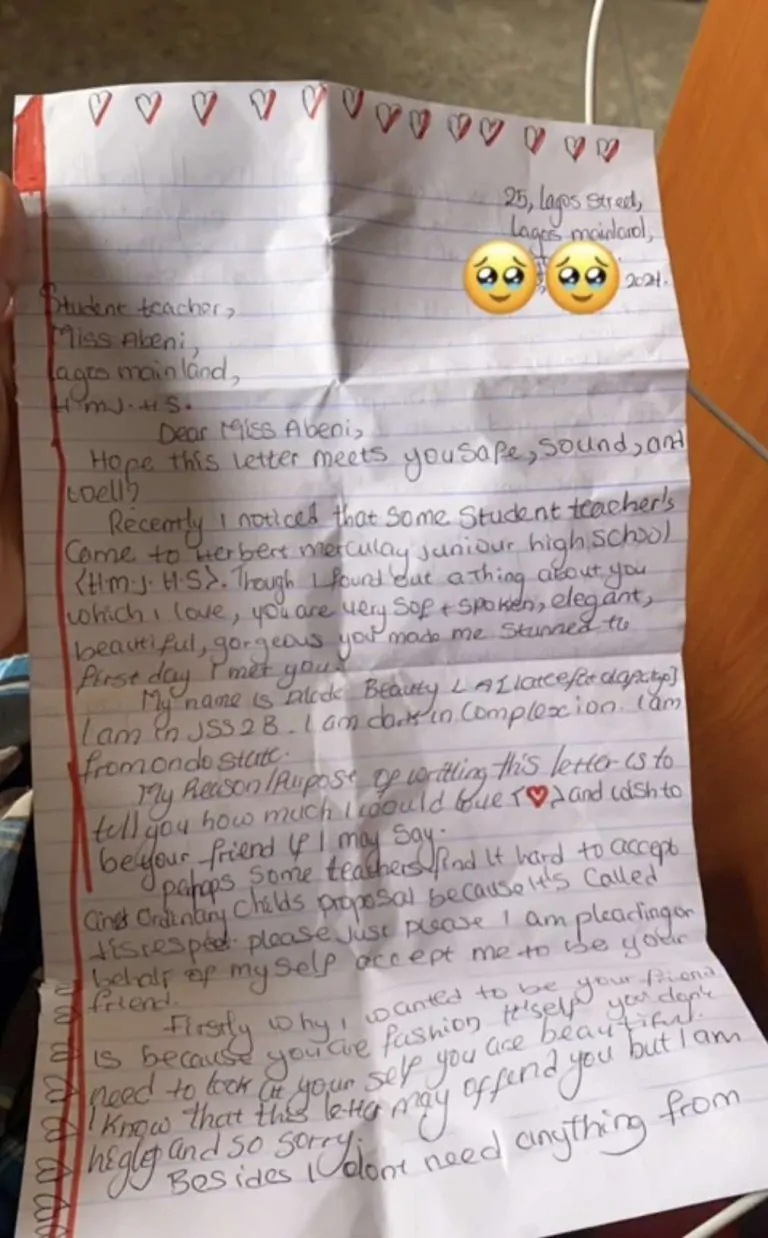 25, Lagos Street,
Lagos mainland,
2021.
Student teacher,
Miss Abeni,
Lagos mainland,
H.M.J.H.S.
Dear Miss Abeni,
Hope this letter meets you safe, sound, and
well?
Recently I noticed that some Student teacher's
Came to Herbert merculay juniour high school
<H.M.J.H.S>. Though I found out a thing about you
which i love, you are very soft spoken, elegant,
beautiful, gorgeous you made me stunned the
first day I met you.
My name is Black Beauty
I am in JSS2B. I am dark in complexcion. I am
from ondo state.
My Reason/Purpose of writting this letter is to
tell you how much I would love <♥> and wish to
be your friend if I may say.
pahaps some teachers find it hard to accept
Ordinary childs proposal because it's called
disrespect. please just please I am pleading on
behalf of my self accept me to be your
friend.
Firstly why i wanted to be your friend
is because you are fashion itself you don't
need to look at your self you are beautiful.
I know that this letter may offend you but I am
and so sorry.
Besides I dont need anything from